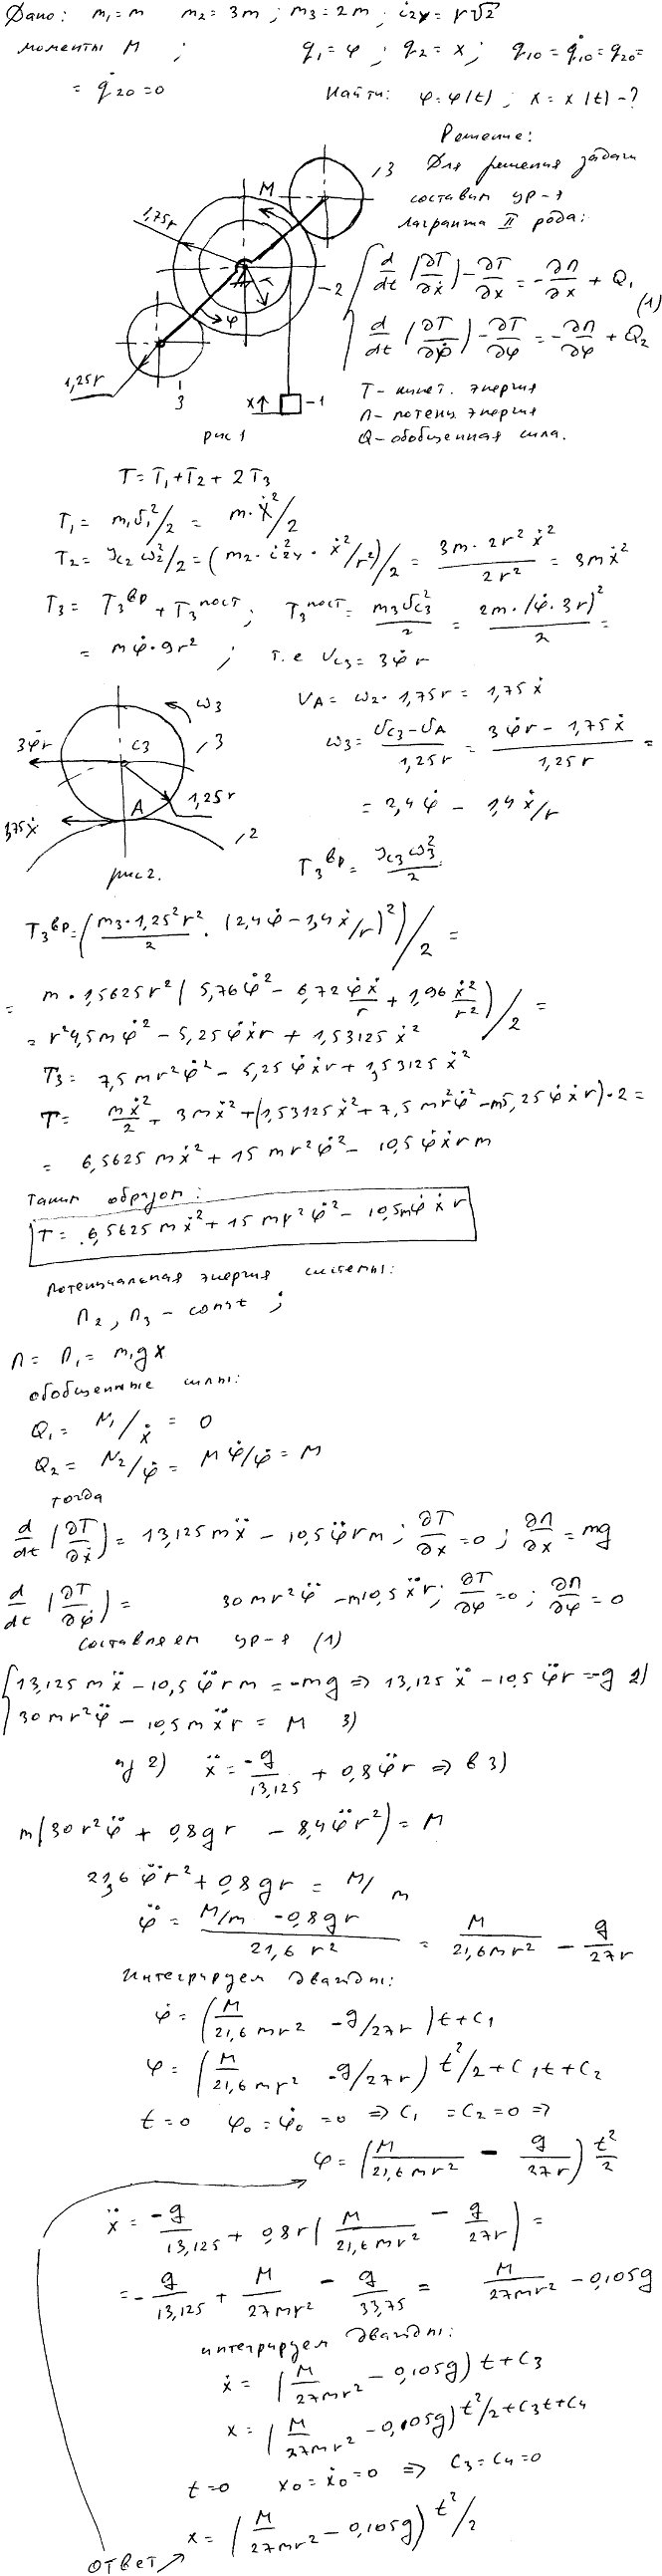 Дано: m₁=m m₂=3m; m₃=2m; i₂ᵧ=r√2
моменты M; q₁=φ; q₂=x; q₁₀=q̇₁₀=q₂₀=
=q̇₂₀=0 Найти: φ=φ(t); x=x(t)-?
Решение:
Для решения задачи
составим ур-я
Лагранжа II рода:
M
3
1,75r
r
2
φ
1,25r
3
x↑
-1
рис 1
d/dt(∂T/∂ẋ)-∂T/∂x=-∂П/∂x+Q₁
(1)
d/dt(∂T/∂φ̇)-∂T/∂φ=-∂П/∂φ+Q₂
T-кинет. энергия
П-потенц. энергия
Q-обобщенная сила.
T=T₁+T₂+2T₃
T₁=m₁υ₁²/2=m·ẋ²/2
T₂=Jc₂ω₂²/2=(m₂·i₂ᵧ²·ẋ²/r²)/2=3m·2r²ẋ²/2r²=3mẋ²
T₃=T₃ᵇᵖ+T₃ᵖᵒᶜᵀ; T₃ᵖᵒᶜᵀ=m₃υc₃²/2=2m·(φ̇·3r)²/2=
=mφ̇·9r²; т.е υc₃=3φ̇r
ω₃
3φ̇r
C₃
3
1,25r
A
1,75ẋ
2
рис2.
υA=ω₂·1,75r=1,75ẋ
ω₃=(υc₃-υA)/1,25r=(3φ̇r-1,75ẋ)/1,25r=
=2,4φ̇-1,4ẋ/r
T₃ᵇᵖ=Jc₃ω₃²/2
T₃ᵇᵖ=(m₃·1,25²r²/2·(2,4φ̇-1,4ẋ/r)²)/2=
=m·1,5625r²(5,76φ̇²-6,72φ̇ẋ/r+1,96ẋ²/r²)/2=
=r²4,5mφ̇²-5,25φ̇ẋr+1,53125ẋ²
T₃=7,5mr²φ̇²-5,25φ̇ẋr+1,53125ẋ²
T=mẋ²/2+3mẋ²+(1,53125ẋ²+7,5mr²φ̇²-m5,25φ̇ẋr)·2=
=6,5625mẋ²+15mr²φ̇²-10,5φ̇ẋrm
Таким образом:
T=6,5625mẋ²+15mr²φ̇²-10,5mφ̇ẋr
потенциальная энергия системы:
П₂,П₃-const;
П=П₁=m₁gx
обобщенные силы:
Q₁=N₁/ẋ=0
Q₂=N₂/φ̇=Mφ̇/φ̇=M
тогда
d/dt(∂T/∂ẋ)=13,125mẍ-10,5φ̈rm; ∂T/∂x=0; ∂П/∂x=mg
d/dt(∂T/∂φ̇)=30mr²φ̈-m10,5ẍr; ∂T/∂φ=0; ∂П/∂φ=0
составляем ур-я (1)
13,125mẍ-10,5φ̈rm=-mg⇒13,125ẍ-10,5φ̈r=-g 2)
30mr²φ̈-10,5mẍr=M 3)
из 2) ẍ=-g/13,125+0,8φ̈r⇒в 3)
m(30r²φ̈+0,8gr-8,4φ̈r²)=M
21,6φ̈r²+0,8gr=M/m
φ̈=(M/m-0,8gr)/21,6r²=M/21,6mr²-g/27r
Интегрируем дважды:
φ̇=(M/21,6mr²-g/27r)t+C₁
φ=(M/21,6mr²-g/27r)t²/2+C₁t+C₂
t=0 φ₀=φ̇₀=0⇒C₁=C₂=0⇒
φ=(M/21,6mr²-g/27r)t²/2
ẍ=-g/13,125+0,8r(M/21,6mr²-g/27r)=
=-g/13,125+M/27mr²-g/33,75=M/27mr²-0,105g
интегрируем дважды:
ẋ=(M/27mr²-0,105g)t+C₃
x=(M/27mr²-0,105g)t²/2+C₃t+C₄
t=0 x₀=ẋ₀=0⇒C₃=C₄=0
x=(M/27mr²-0,105g)t²/2
ответ